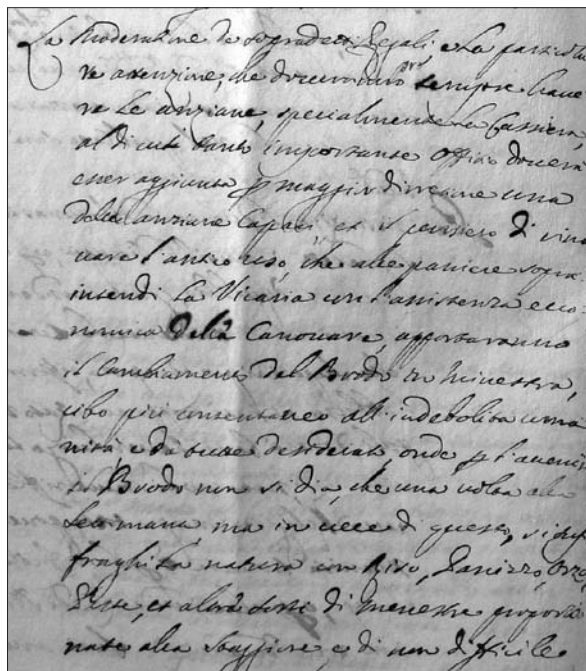 La Moderatione de sopradetti Regali e la particola
re attenzione, che doveranno sempre have
re le anziane, specialmente la Cassiera,
al di cui tanto importante Offizio doverà
esser aggiunta p maggior direzione una
delle anziane Capaci, et il pensiero di rino
vare l'antico uso, che alle paniere sopra
intendi la Vicaria con l'assistenza eco
nomica della Canovare, apporteranno
il Cambiamento del Brodo in minestra,
cibo più consentaneo all'indebolita uma
nità e da tutte desiderato, onde p l'avenire
il Brodo non si dia, che una volta alla
settimana, ma in vece di questo, si
fraghi la natura con Riso, Panizzo, Orzo,
et altre sorti di menestre proporzio
nate alla Staggione, e di non difficile